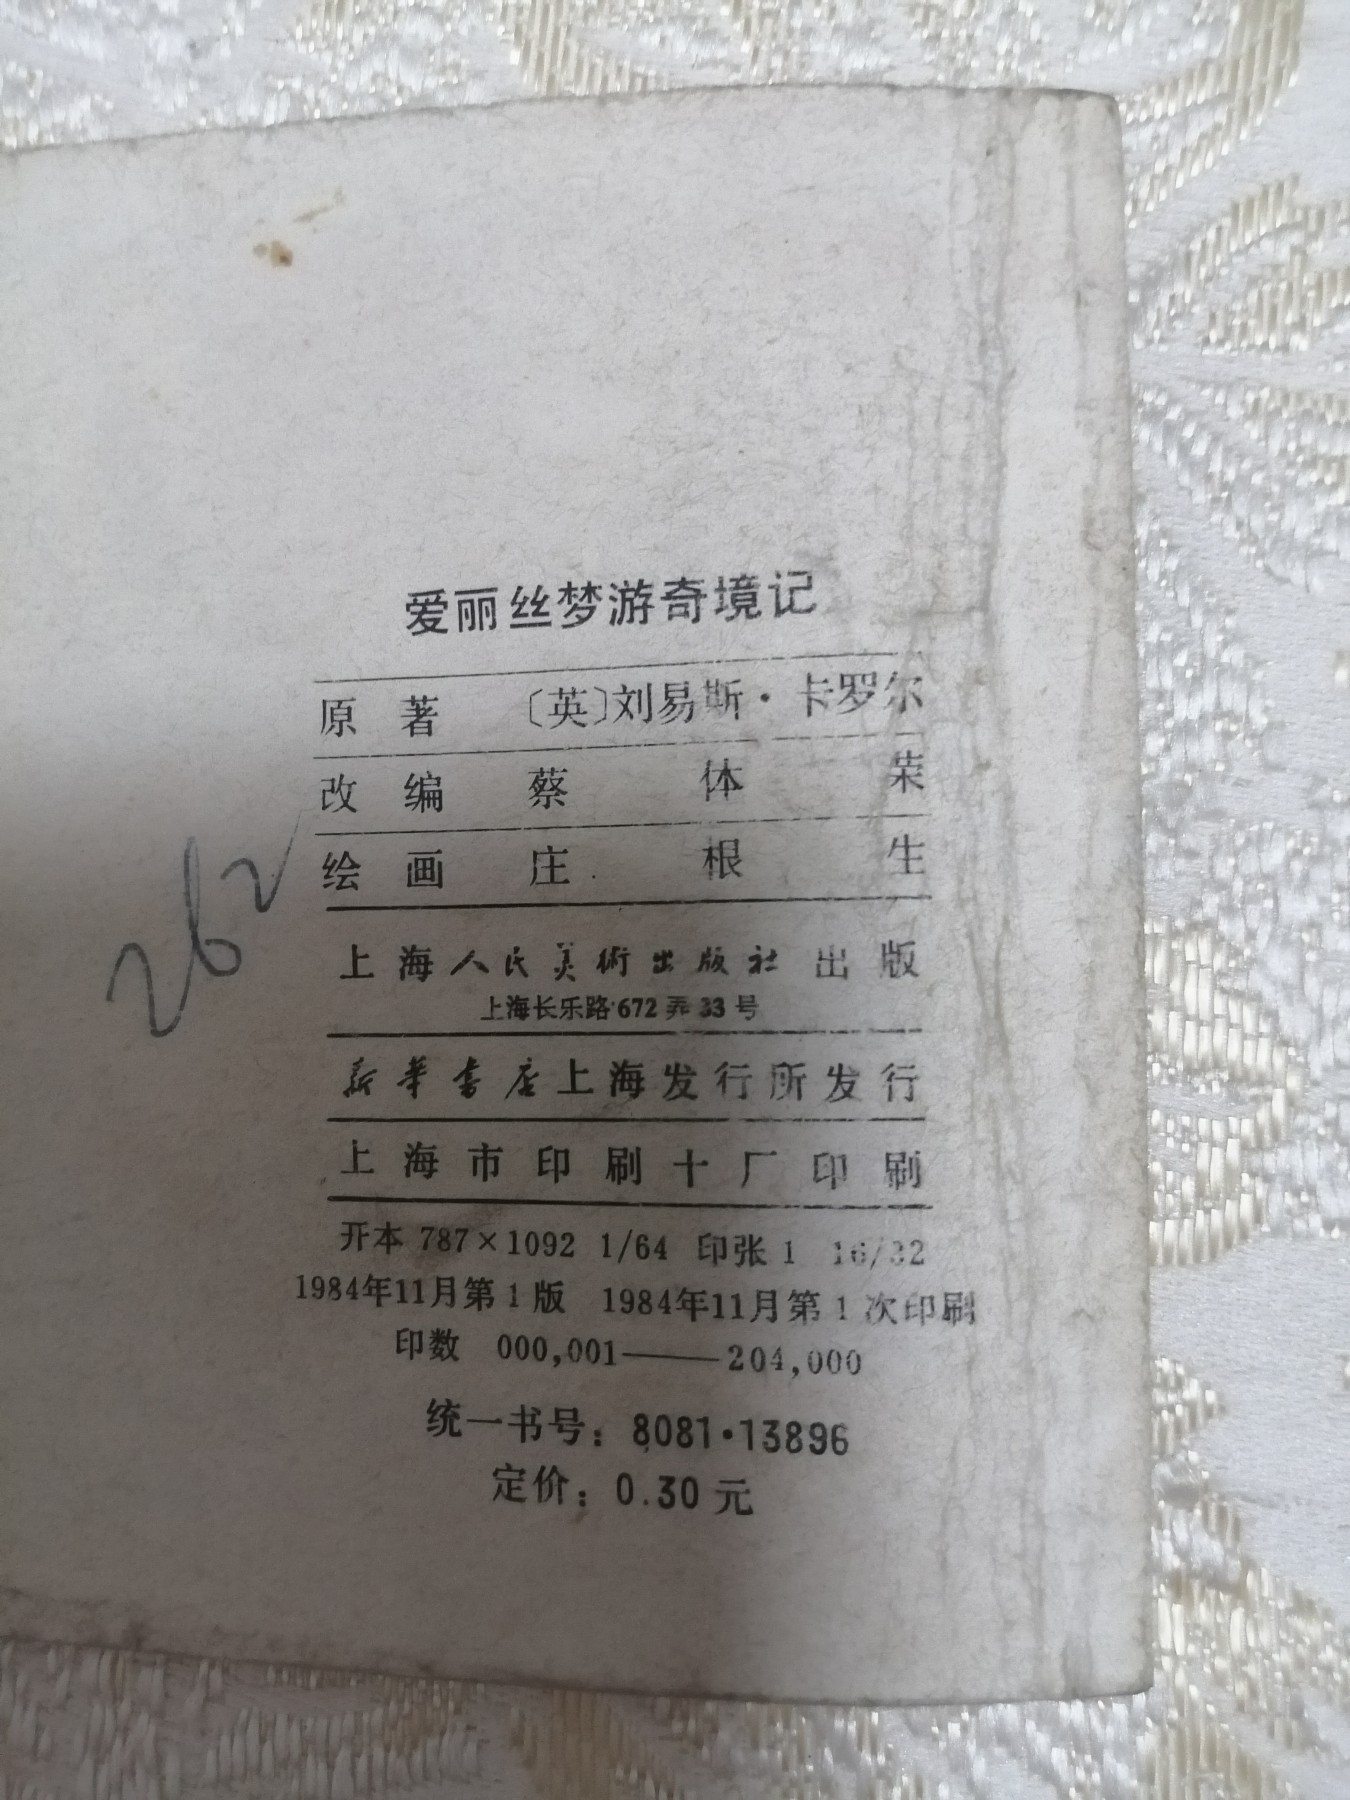 爱丽丝梦游奇境记
原 著 〔英〕刘易斯·卡罗尔
改 编 蔡 体 荣
绘 画 庄 根 生
上海人民美術出版社 出版
上海长乐路672弄33号
新华书店上海发行所发行
上海市印刷十厂印刷
开本 787×1092 1/64 印张 1 16/32
1984年11月第1版 1984年11月第1次印刷
印数 000,001——204,000
统一书号：8081·13896
定价：0.30元
262